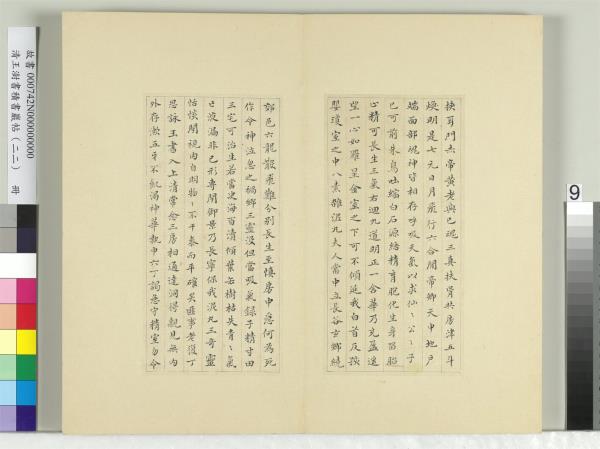 扶耳門赤帝黃老與己魂三真扶胥共房津五斗
煥明是七元日月飛行六合間帝鄉天中地戶
端面部魂神皆相存呼吸元氣以求仙〻公〻子
已可前朱鳥吐縮白石源結精育胞化生身留胎
止精可長生三氣右迴九道明正一含華乃充盈遙
望一心如羅星金室之下可不傾延我白首反孩
嬰瓊室之中八素集泥丸夫人當中立長谷玄鄉繞
郊邑六龍散飛難分別長生至慎房中急何為死
作令神泣忽之禍鄉三靈沒但當吸氣錄子精寸田
尺宅可治生若當決海百瀆傾葉去樹枯失青〻氣
亡液漏非己形專閉御景乃長寧保我泥丸三奇靈
恬惔閉視內自明物〻不干泰而平愨矣匪事老復丁
思詠玉書入上清常念三房相通達洞得視見無內
外存漱五牙不飢渴神華執巾六丁謁急守精室勿妄
故書 000742N000000000
清王澍書積書巖帖（二二） 冊
9